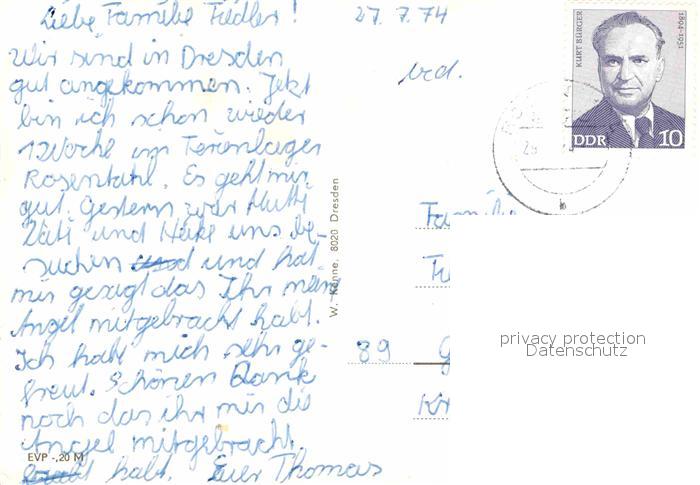 Liebe Familie Fiedler!
27. 7. 74
Wir sind in Dresden
gut angekommen. Jetzt
bin ich schon wieder
1 Woche im Ferienlager
Rosentahl. Es geht mir
gut. Gestern war Mutti
Vati und Heike uns be-
suchen und hat
mir gesagt das Ihr mein
Angel mitgebracht habt.
Ich habe mich sehr ge-
freut. Schönen Dank
noch das ihr mir die
Angel mitgebracht
habt. Euer Thomas
EVP -,20 M
W. Könne, 8020 Dresden
KURT BÜRGER
1894-1951
DDR 10
Familie
89
privacy protection
Datenschutz